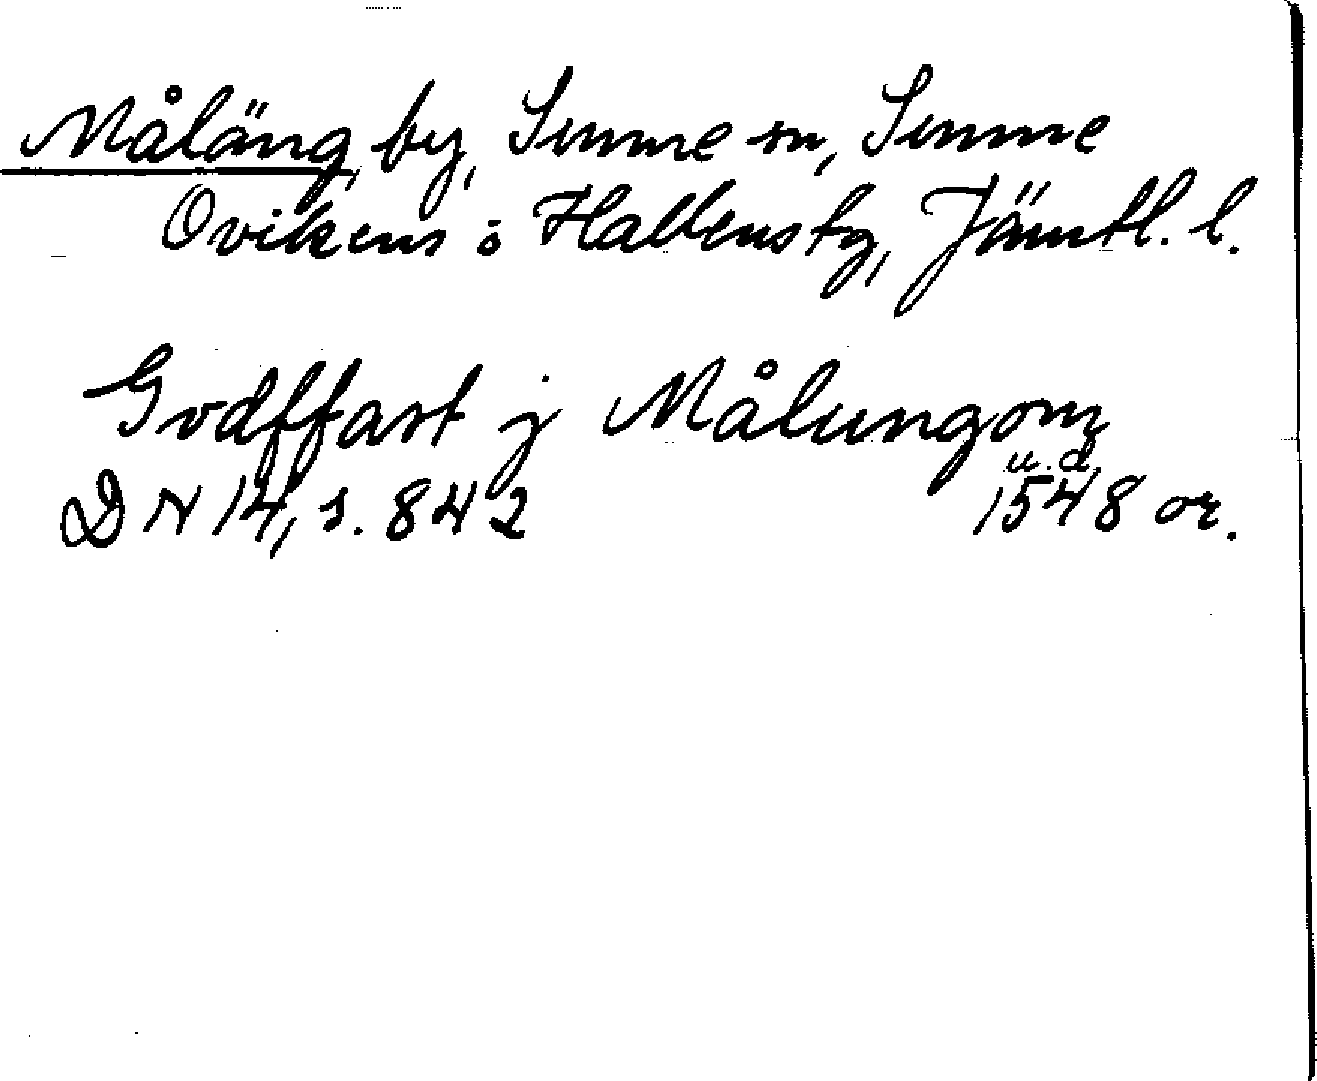 Måläng, by, Sunne sn, Sunne
Ovikens o Hallens tg, Jämtl. l.
Godffast j Målungom
u.d.
DN 14, s. 842 1548 or.